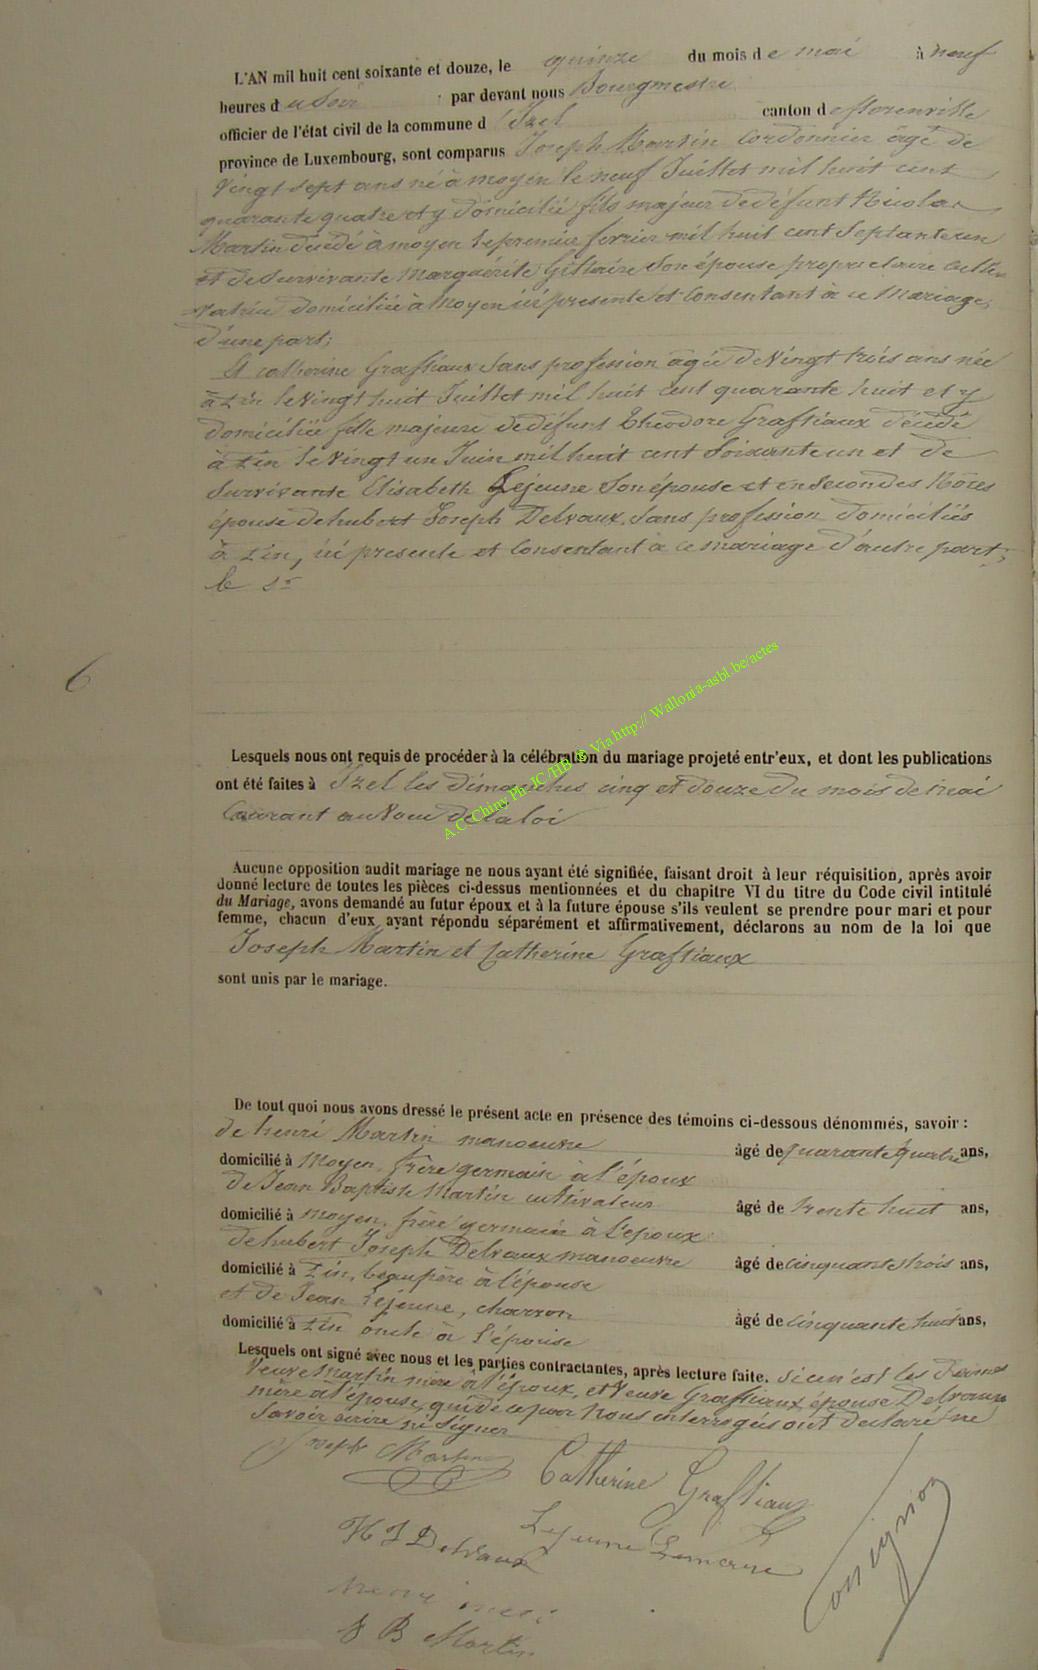 L'AN mil huit cent soixante et douze, le quinze du mois de mai à neuf
heures du soir par devant nous Bourgmestre
officier de l'état civil de la commune d'Izel canton de florenville
province de Luxembourg, sont comparus Joseph Martin Cordonnier âgé de
vingt sept ans né à moyen le neuf Juillet mil huit cent
quarante quatre et y domicilié fils majeur de défunt Nicolas
Martin décédé à moyen le premier fevrier mil huit cent septante un
et de survivante Marguérite Gillaire son épouse propriétaire culti
vatrice domiciliée à Moyen ici présente et consentant à ce Mariage,
d'une part;
Et catherine Graftiaux sans profession âgée de Vingt trois ans née
à Pin le Vingt huit Juillet mil huit cent quarante huit et y
domiciliée fille majeure de défunt Théodore Graftiaux décédé
à Pin le Vingt un Juin mil huit cent soixante un et de
survivante Elisabeth Lejeune son épouse et en secondes Nôces
épouse de hubert Joseph Delvaux, sans profession domiciliés
à Pin, ici presente et consentant à ce mariage d'autre part;
le sr
6
Lesquels nous ont requis de procéder à la célébration du mariage projeté entr'eux, et dont les publications
ont été faites à Izel les dimanches cinq et douze du mois de mai
Courant au Nom de la loi
A.C. Chiny Ph JC /HB ® Via http:// Wallonia-asbl.be/actes
Aucune opposition audit mariage ne nous ayant été signifiée, faisant droit à leur réquisition, après avoir
donné lecture de toutes les pièces ci-dessus mentionnées et du chapitre VI du titre du Code civil intitulé
du Mariage, avons demandé au futur époux et à la future épouse s'ils veulent se prendre pour mari et pour
femme, chacun d'eux ayant répondu séparément et affirmativement, déclarons au nom de la loi que
Joseph Martin et Catherine Graftiaux
sont unis par le mariage.
De tout quoi nous avons dressé le présent acte en présence des témoins ci-dessous dénommés, savoir :
de henri Martin manoeuvre âgé de quarante quatre ans,
domicilié à Moyen, frère germain à l'époux
de Jean Baptiste Martin cultivateur âgé de trente huit ans,
domicilié à moyen, frère germain à l'époux
de hubert Joseph Delvaux manoeuvre âgé de cinquante trois ans,
domicilié à Pin, beau père à l'épouse
et de Jean Lejeune, charron âgé de cinquante huit ans,
domicilié à Pin oncle à l'épouse
Lesquels ont signé avec nous et les parties contractantes, après lecture faite. si ce n'est les Dames
Veuve Martin mère à l'époux, et Veuve Graftiaux épouse Delvaux
mère à l'épouse, qui de ce par Nous interrogés ont declaré ne
savoir écrire ni signer
Joseph Martin
Catherine Graftiaux
H J Delvaux
Lejeune
J B Martin